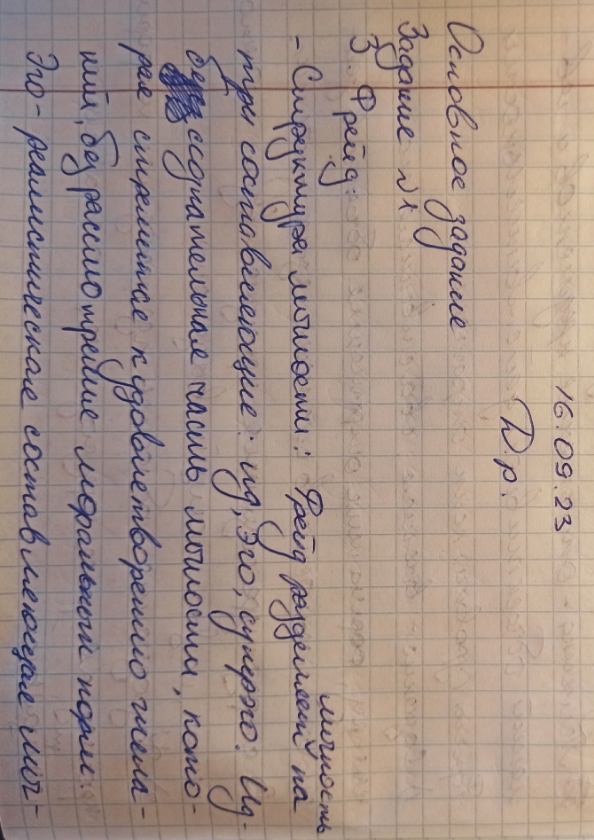 16.09.23
Д.р.
Основное задание
Задание №1
З. Фрейд
личность
- Структура личности: Фрейд разделяет на
три составляющие: ид, эго, суперэго. Ид-
бессознательная часть личности, кото-
рая стремится к удовлетворению жела-
ний, без рассмотрение моральных норм.
Эго- реалистическая составляющая лич-